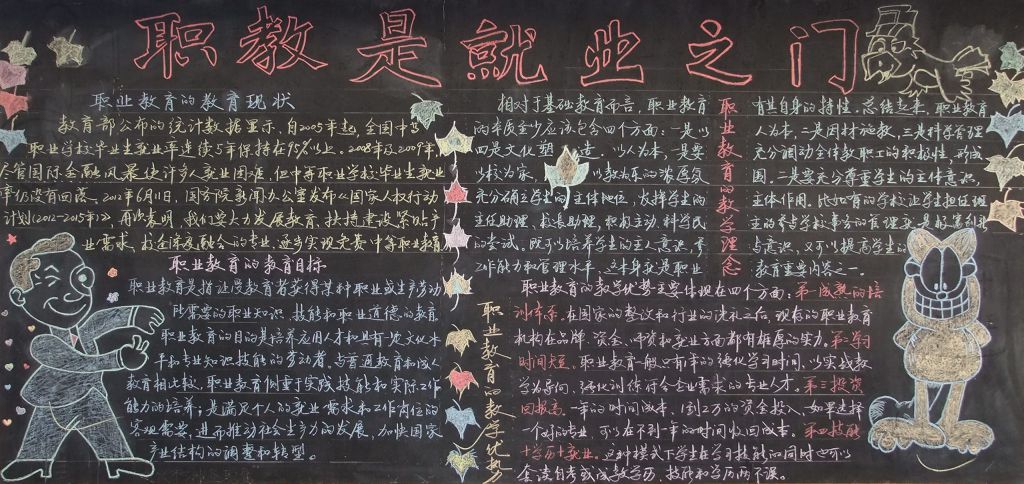 职教是就业之门
职业教育的教育现状
教育部公布的统计数据显示,自2005年起,全国中等
职业学校毕业生就业率连续5年保持在95%以上。2008年及2009年,
尽管国际金融风暴使许多人就业困难,但中等职业学校毕业生就业
率仍没有回落。2012年6月11日,国务院新闻办公室发布《国家人权行动
计划(2012-2015年)》,再次表明,我们要大力发展教育,扶持建设紧贴产
业需求、校企深度融合的专业,逐步实现免费中等职业教育
职业教育的教育目标
职业教育是指让受教育者获得某种职业或生产劳动
所需要的职业知识、技能和职业道德的教育。
职业教育的目的是培养应用人才和具有一定文化水
平和专业知识技能的劳动者,与普通教育和成人
教育相比较,职业教育侧重于实践技能和实际工作
能力的培养;是满足个人的就业需求和工作岗位的
客观需要,进而推动社会生产力的发展,加快国家
产业结构的调整和转型。
职业教育的教学理念
相对于基础教育而言,职业教育
的本质至少应该包含四个方面:一是以
四是文化塑造,以人为本,一是要
以校为家
充分确立学生的主体地位,发挥学生的
主任助理、校长助理,积极主动、科学民
的尝试,既可以培养学生的主人意识
工作能力和管理水平,这本身就是职业
有其自身的特性。总结起来,职业教育
人为本,二是因材施教,三是科学管理
充分调动全体教职工的积极性,形成
围,二是要充分尊重学生的主体意识,
主体作用。比如有的学校让学生担任班主
点意识,又可以提高学生的
教育重要内容之一。
职业教育的教学优势
职业教育的教学优势主要体现在四个方面:第一成熟的培
训体系,在国家的整改和行业的洗礼之后,现有的职业教育
机构在品牌、资金、师资和就业方面都有雄厚的实力。第二学习
时间短,职业教育一般只有年的强化学习时间,以实践教
学为导向,强化训练符合企业需求的专业人才。第三投资
回报高,一年的时间成本,1到2万的资金投入,如果选择
一个好的专业,可以在不到一年的时间收回成本。第四技能
+学历+就业,这种模式下学生在学习技能的同时也可以
套读自考或成教学历,技能和学历两不误。